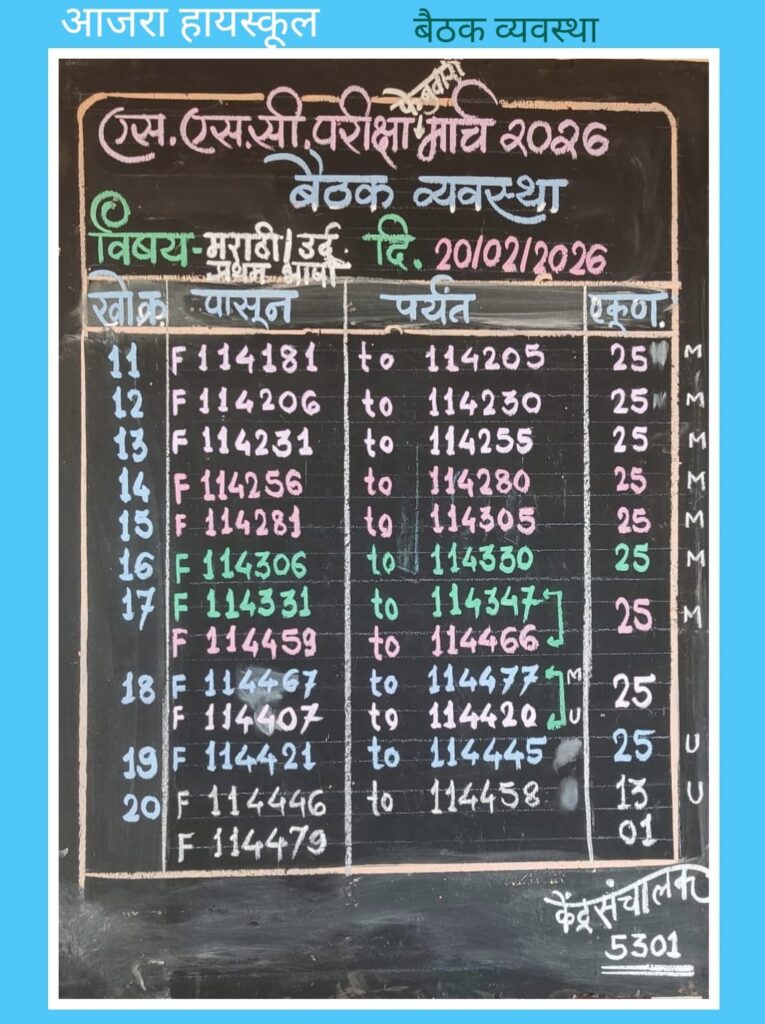 आजरा हायस्कूल
बैठक व्यवस्था
फेब्रुवारी
एस.एस.सी.परीक्षा मार्च २०२6
बैठक व्यवस्था
विषय-मराठी/उर्दू प्रथम भाषा दि. 20/02/2026
खो.क्र. पासून पर्यंत एकूण.
11 F 114181 to 114205 25 M
12 F 114206 to 114230 25 M
13 F 114231 to 114255 25 M
14 F 114256 to 114280 25 M
15 F 114281 to 114305 25 M
16 F 114306 to 114330 25 M
17 F 114331 to 114347 25 M
F 114459 to 114466
18 F 114467 to 114477 M 25
F 114407 to 114420 U
19 F 114421 to 114445 25 U
20 F 114446 to 114458 13 U
F 114479 01
केंद्रसंचालक
5301